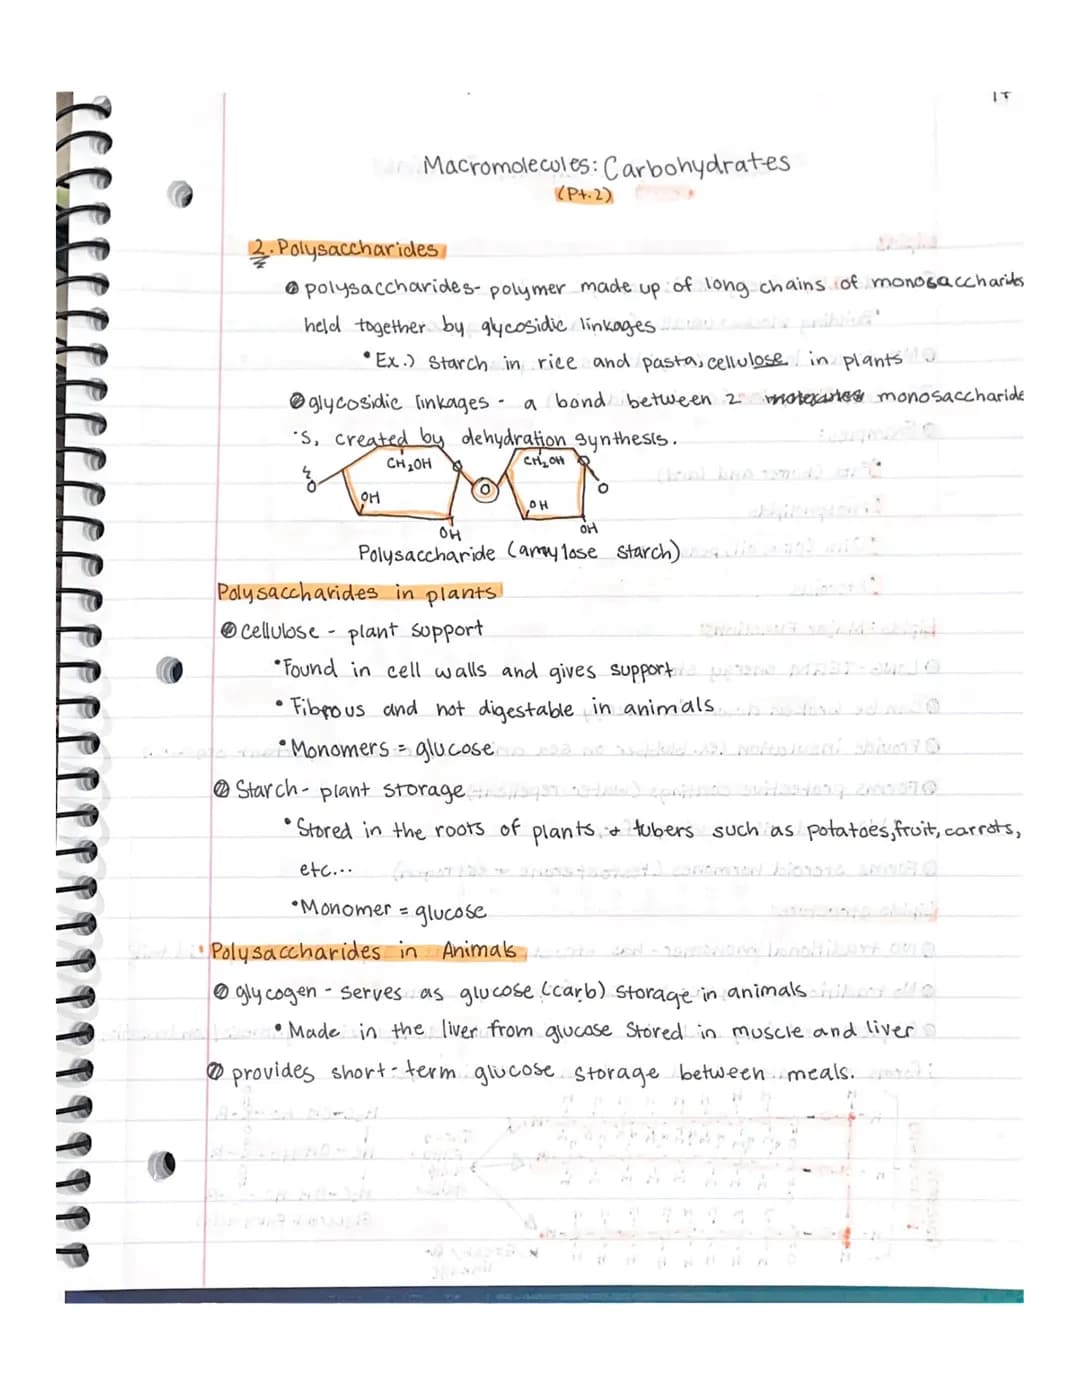 17
Macromolecules: Carbohydrates
(Pt.2)
2. Polysaccharides
polysaccharides- polymer made up of long chains of monosaccharids
held together by glycosidic linkages
• Ex.) Starch in rice and pasta, cellulose in plants
glycosidic linkages - a bond between 2 molecules monosaccharide
's, created by dehydration synthesis.
CH₂OH CH₂OH
O O O
OH OH
OH OH
Polysaccharide (amylose starch)
Polysaccharides in plants
cellulose - plant support
• Found in cell walls and gives support
• Fibrous and not digestable in animals
• Monomers = glucose
Starch- plant storage
• Stored in the roots of plants + tubers such as potatoes, fruit, carrots,
etc...
• Monomer = glucose
Polysaccharides in Animals
glycogen - serves as glucose (carb) storage in animals
• Made in the liver from glucose Stored in muscle and liver
provides short-term glucose storage between meals.